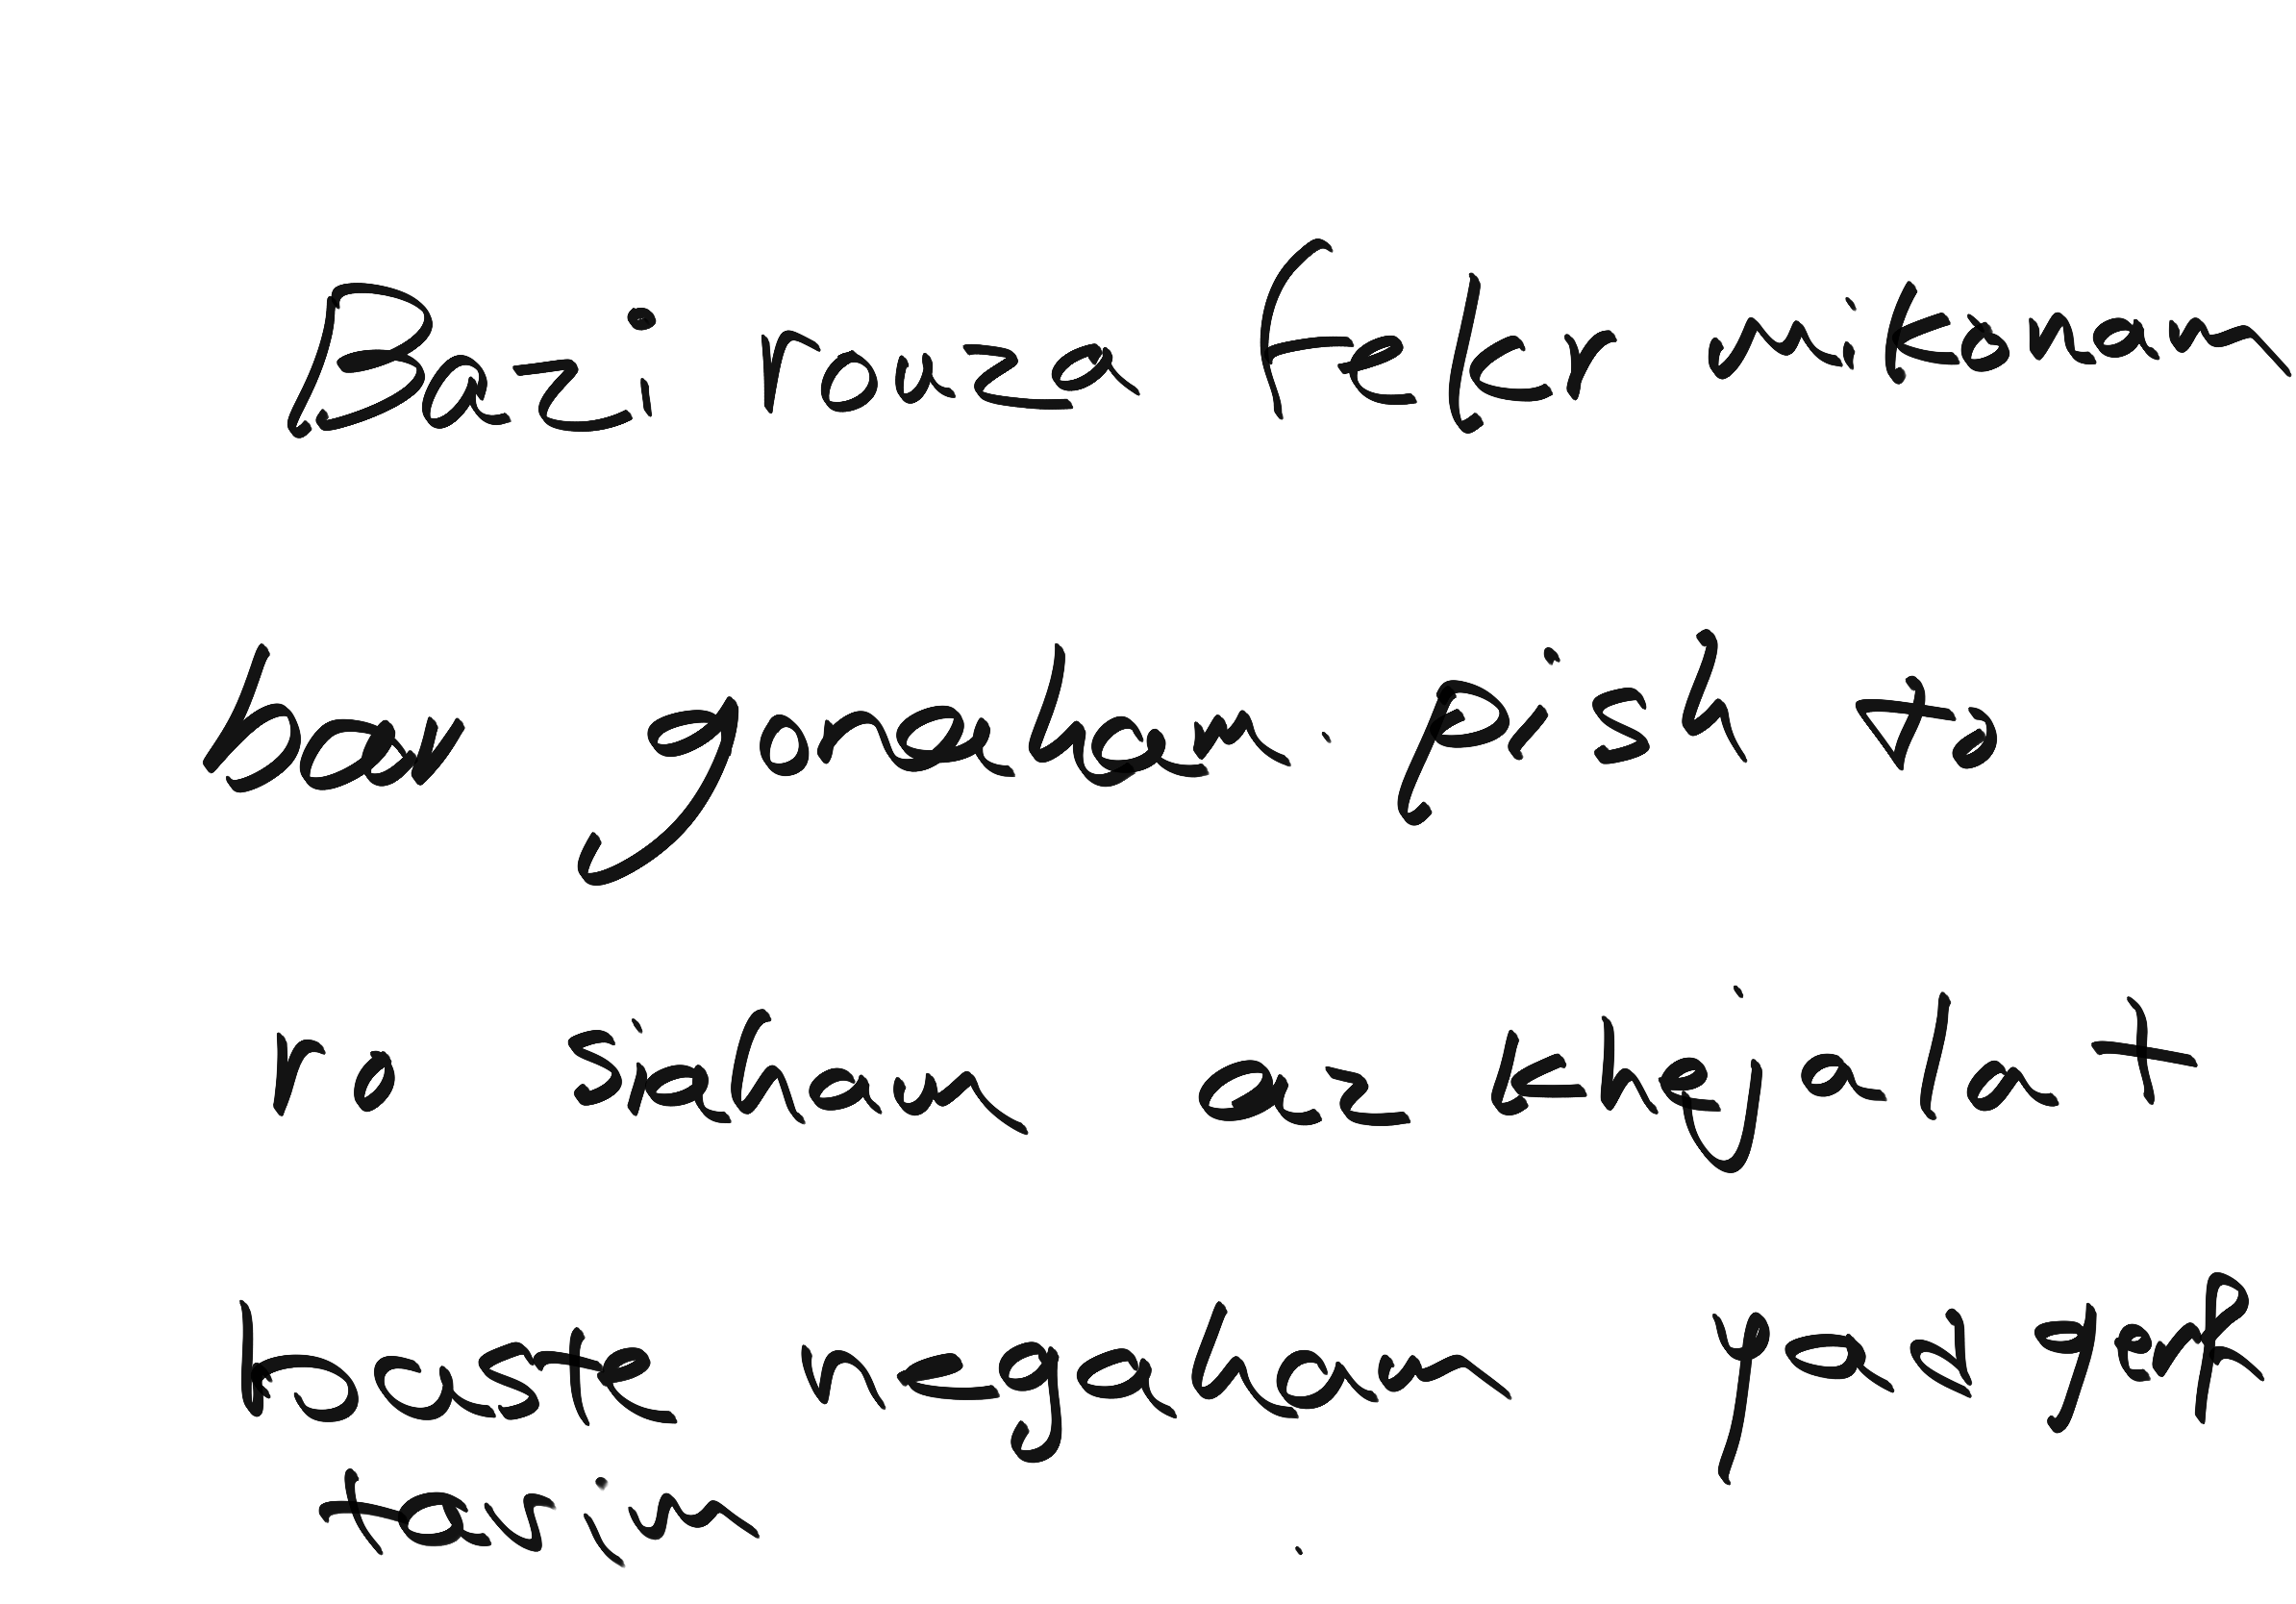 Bazi rouza fekr mikonam
bar gonaham. pish to
ro siaham az khejalat
baste negaham yad gerf
tarim